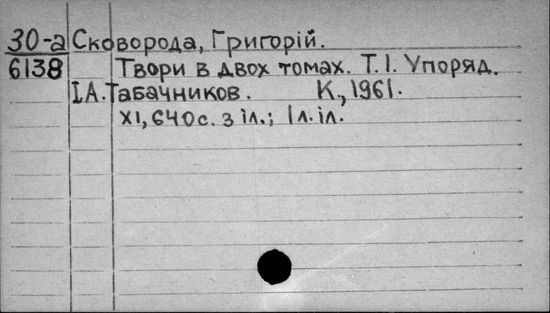 30-а Сковорода, Григорій.
6138 Твори в двох томах. Т.І. Упоряд.
І.А. Табачников. К., 1961.
XI, 640 с. з іл.; 1 л. іл.